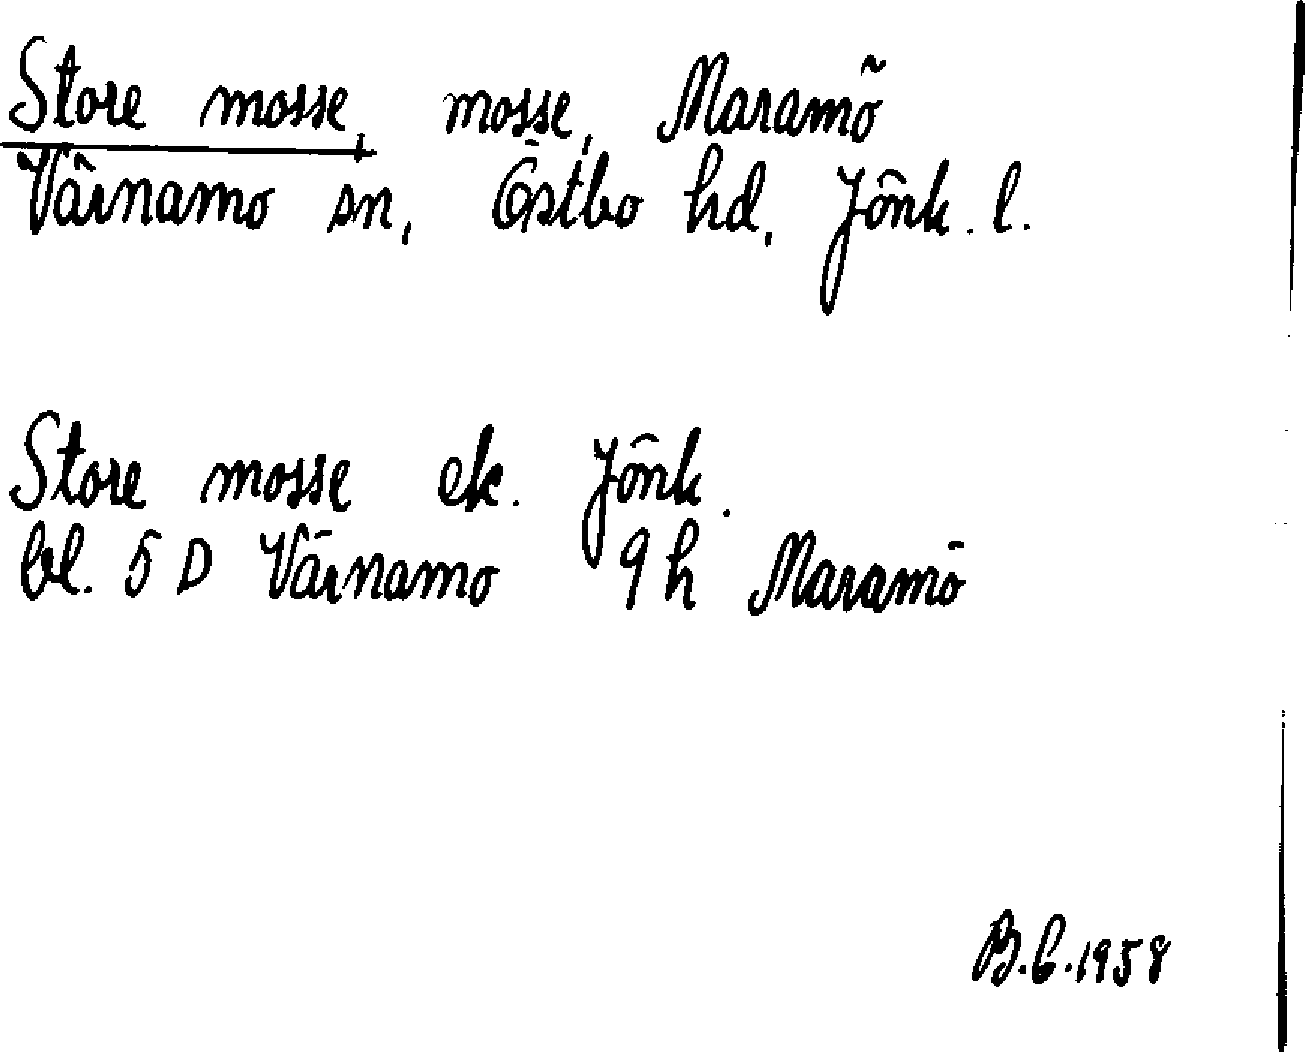 Store mosse, mosse, Maramö
Värnamo sn, Östbo hd, Jönk. l.
Store mosse ek. Jönk.
bl. 5 D Värnamo 9 h Maramö
B.E. 1958